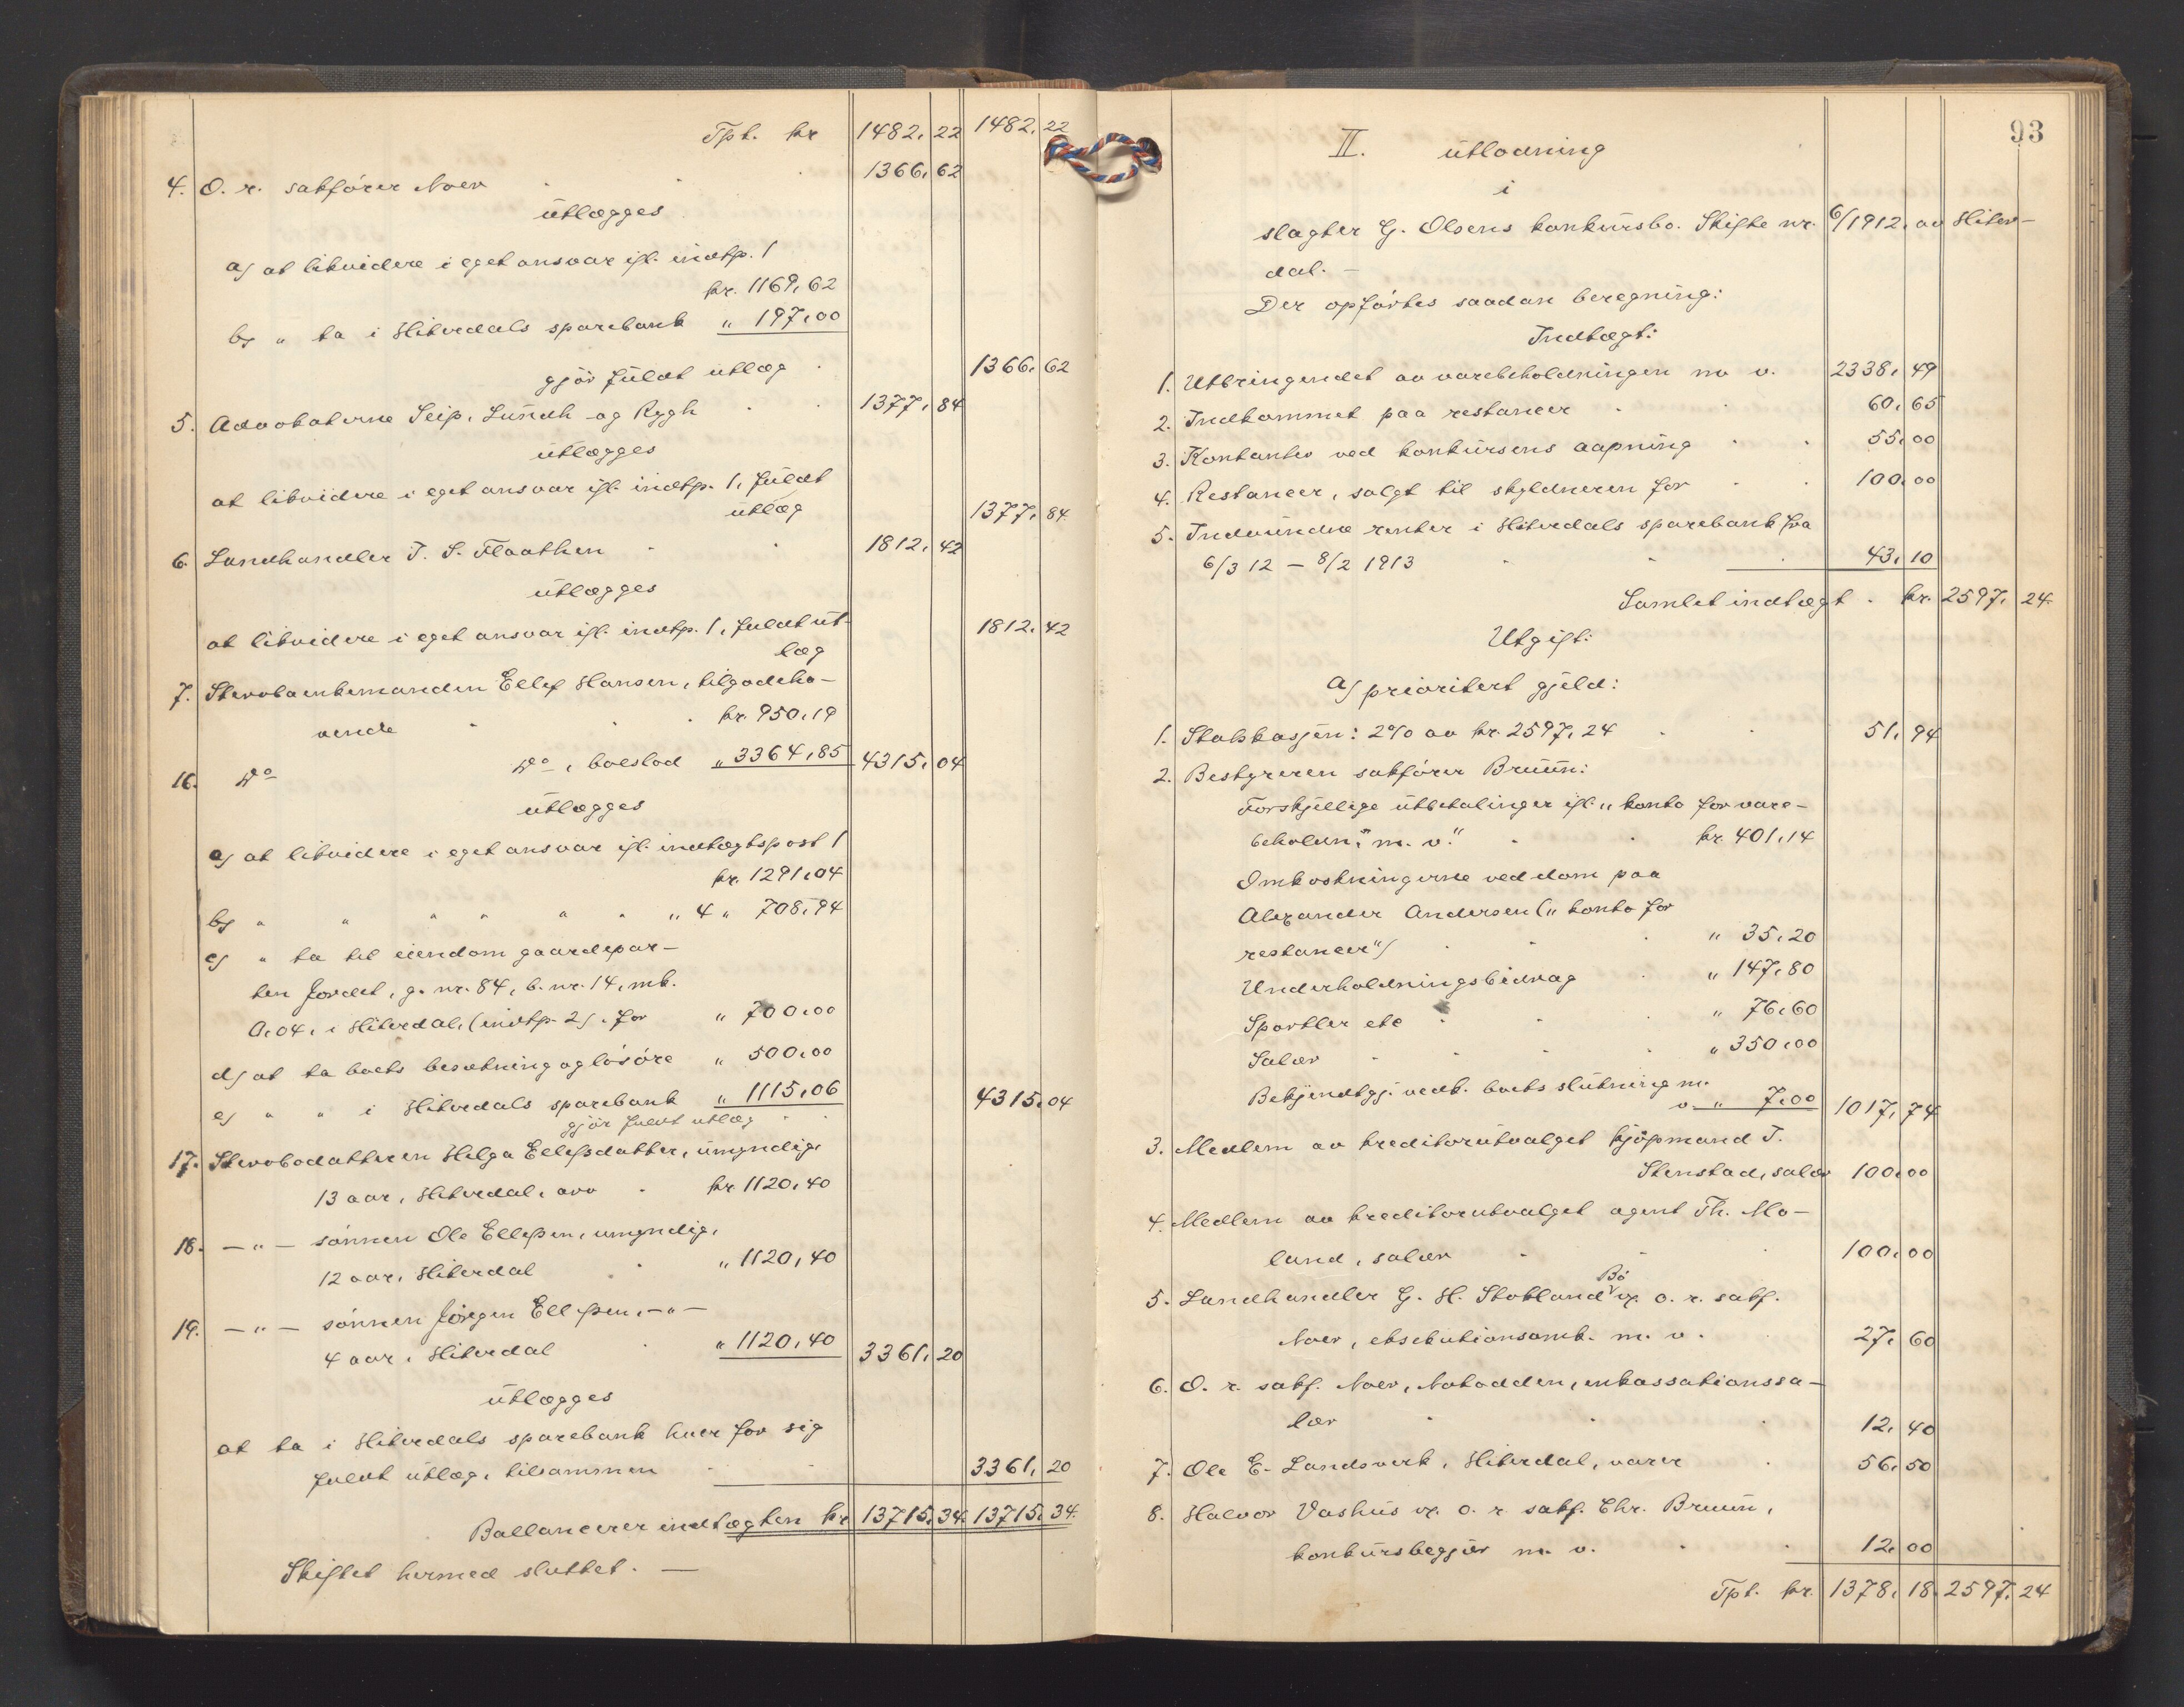 Tpt. kr 1482,22 1482,22
4. O. r. sakfører Noer . . . 1366,62
utlægges
a) at likvidere i eget ansvar ifl. indtp. 1
kr. 1169,62
b) " ta i Hiterdals sparebank " 197,00
gjør fuldt utlæg . 1366,62
5. Advokaterne Seip, Lundh og Rygh . . 1377,84
utlægges
at likvidere i eget ansvar ifl. indtp. 1, fuldt
utlæg 1377,84
6. Landhandler T. S. Flaathen . . 1812,42
utlægges
at likvidere i eget ansvar ifl. indtp. 1, fuldt ut-
læg 1812,42
7. Stervboenkemanden Ellef Hansen, tilgodeha-
vende . . . kr. 950,19
16. do do, boeslod " 3364,85 4315,04
utlægges
a) at likvidere i eget ansvar ifl. indtægtspost 1
kr. 1291,04
b) " " " " " " " 4 " 708,94
c) " ta til eiendom gaardepar-
ten Jordet, g. nr. 84, b. nr. 14, mk.
0,04, i Hiterdal, (indtp. 2), for " 700,00
d) at ta boets besætning og løsøre " 500,00
e) " " i Hiterdals sparebank " 1115,06 4315,04
gjør fuldt utlæg . .
17. Stervbodatteren Helga Ellefsdatter, umyndig,
13 aar, Hiterdal, arv . kr 1120,40
18. — " — sønnen Ole Ellefsen, umyndig,
12 aar, Hiterdal . " 1120,40
19. — " — sønnen Jörgen Ellefsen, — " —
4 aar, Hiterdal . " 1120,40 3361,20
utlægges
at ta i Hiterdals sparebank hver for sig
fuldt utlæg, tilsammen . . 3361,20
Ballancerer indtægten kr 13715,34. 13715,34.
Skiftet hermed sluttet. —
93
II. utlodning
i
slagter G. Olsens konkursbo. Skifte nr. 6/1912, av Hiter-
dal. —
Der opførtes saadan beregning:
Indtægt:
1. Utbringendet av varebeholdningen m. v. 2338,49
2. Indkommet paa restancer . . 60,65
3. Kontanter ved konkursens aapning . . 55,00
4. Restancer, solgt til skyldneren for . . 100,00
5. Indvundne renter i Hiterdals sparebank fra
6/3 12 — 8/2 1913 . . . 43,10
Samlet indtægt . kr. 2597,24.
Utgift:
A) prioritert gjeld:
1. Statskassen: 2% av kr. 2597,24 . . 51,94
2. Bestyreren sakfører Bruun:
Forskjellige utbetalinger ifl. "konto for vare-
beholdn." m. v." . . kr. 401,14
Omkostningerne ved dom paa
Alexander Andersen ("konto for
restancer") . . . " 35,20
Underholdningsbidrag . " 147,80
Sportler etc . . . " 76,60
Salær . . . . " 350,00
Bekjendtgj. vedk. boets slutning m.
v. " 7,00 1017,74
3. Medlem av kreditorutvalget kjøpmand T.
Stenstad, salær 100,00
4. Medlem av kreditorutvalget agent Th. Mo-
land, salær . . . 100,00
5. Landhandler G. H. Stokland Bø v. o. r. sakf.
Noer, eksekutionsomk. m. v. . 27,60
6. O. r. sakf. Noer, Notodden, inkassationssa-
lær . . . 12,40
7. Ole E. Landsverk, Hiterdal, varer . 56,50
8. Halvor Vashus v. o. r. sakf. Chr. Bruun,
konkursbegjær m. v. . . 12,00
Tpt. kr. 1378,18. 2597,24